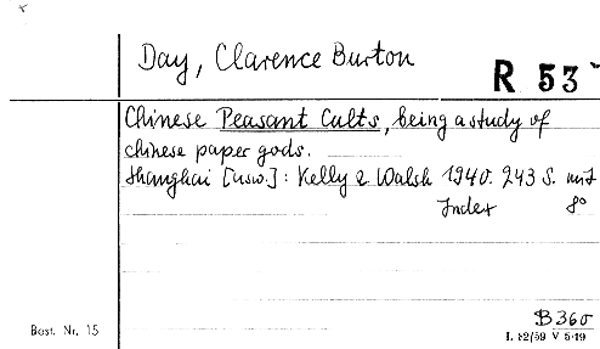 Day, Clarence Burton
R 53
Chinese Peasant Cults, being a study of
chinese paper gods.
Shanghai [usw.]: Kelly & Walsh 1940. 243 S. mit
Index 8°
B360
Best. Nr. 15
I. 82/59 V 5-49